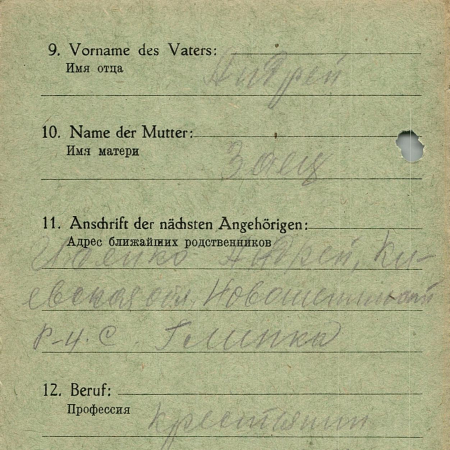 9. Vorname des Vaters:
Имя отца
Андрей
10. Name der Mutter:
Имя матери
Заец
11. Anschrift der nächsten Angehörigen:
Адрес ближайших родственников
Андрей, Ки-
евская обл.
р-н. С. Глинка
12. Beruf:
Профессия
крестьянин